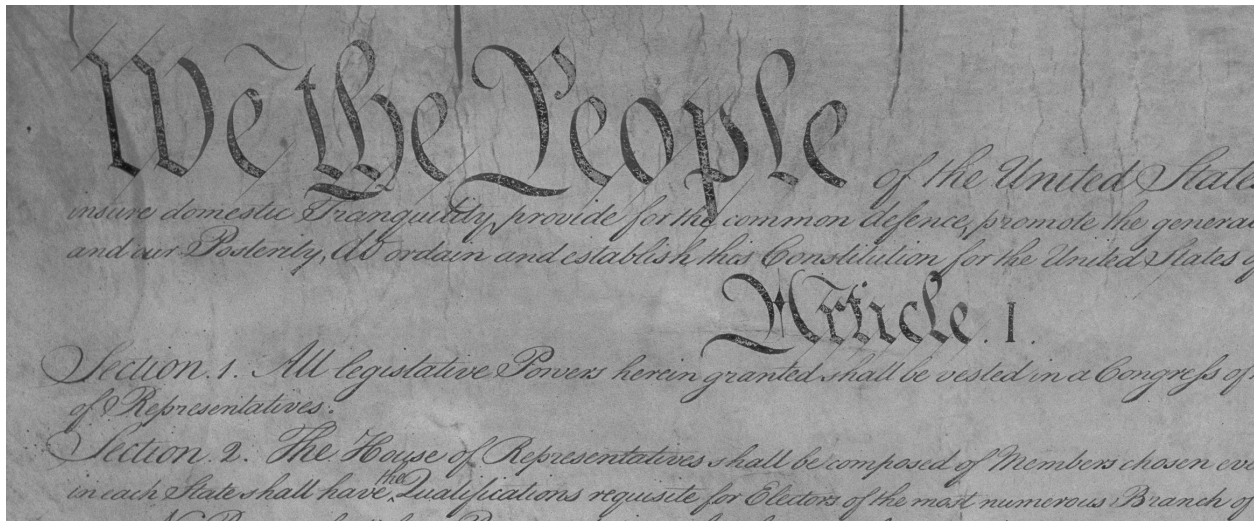 We the People of the United States
insure domestic Tranquility, provide for the common defence, promote the general
and our Posterity, do ordain and establish this Constitution for the United States
Article. I.
Section. 1. All legislative Powers herein granted shall be vested in a Congress of
of Representatives.
Section. 2. The House of Representatives shall be composed of Members chosen
in each State shall have the Qualifications requisite for Electors of the most numerous Branch of